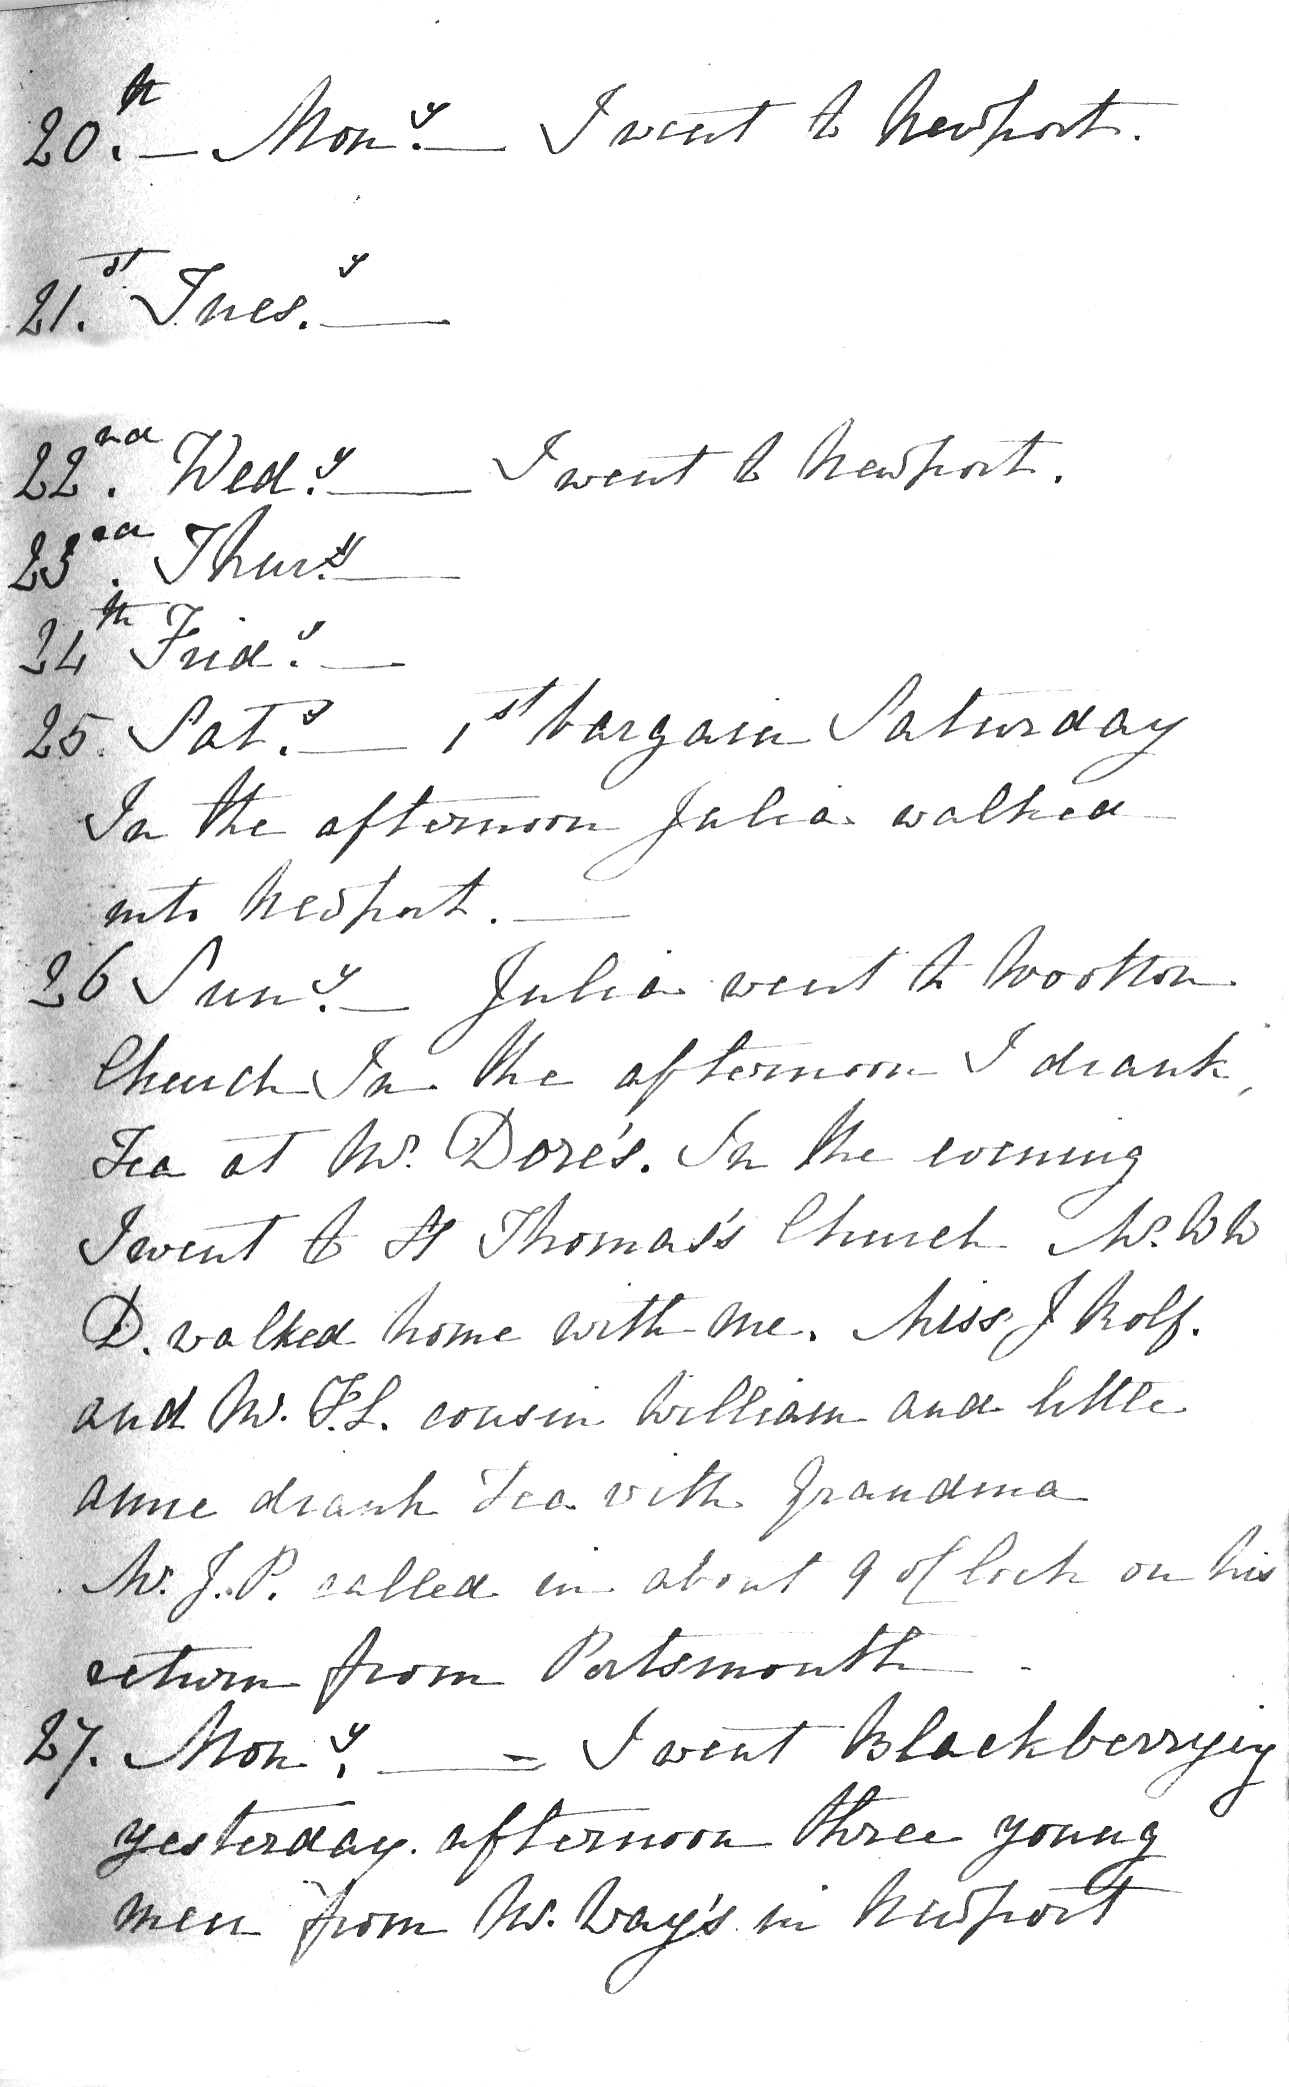 20th. — Mony. — I went to Newport.
21st. Tuesy. —
22nd. Wedy. — I went to Newport.
23rd. Thursy. —
24th Fridy. —
25. Saty. — 1st bargain Saturday
In the afternoon Julia walked
into Newport. —
26 Suny. — Julia went to Wootton
Church In the afternoon I drank
Tea at Mr. Dore's. In the evening
I went to St Thomas's Church Mr. W W
D. walked home with me. Miss J Rolf.
and Mr. F.L. cousin William and little
anne drank Tea with Grandma
Mr. J. P. called in about 9 o'Clock on his
return from Portsmouth
27. Mony. — I went Blackberrying
yesterday afternoon three young
men from Mr. Way's in Newport